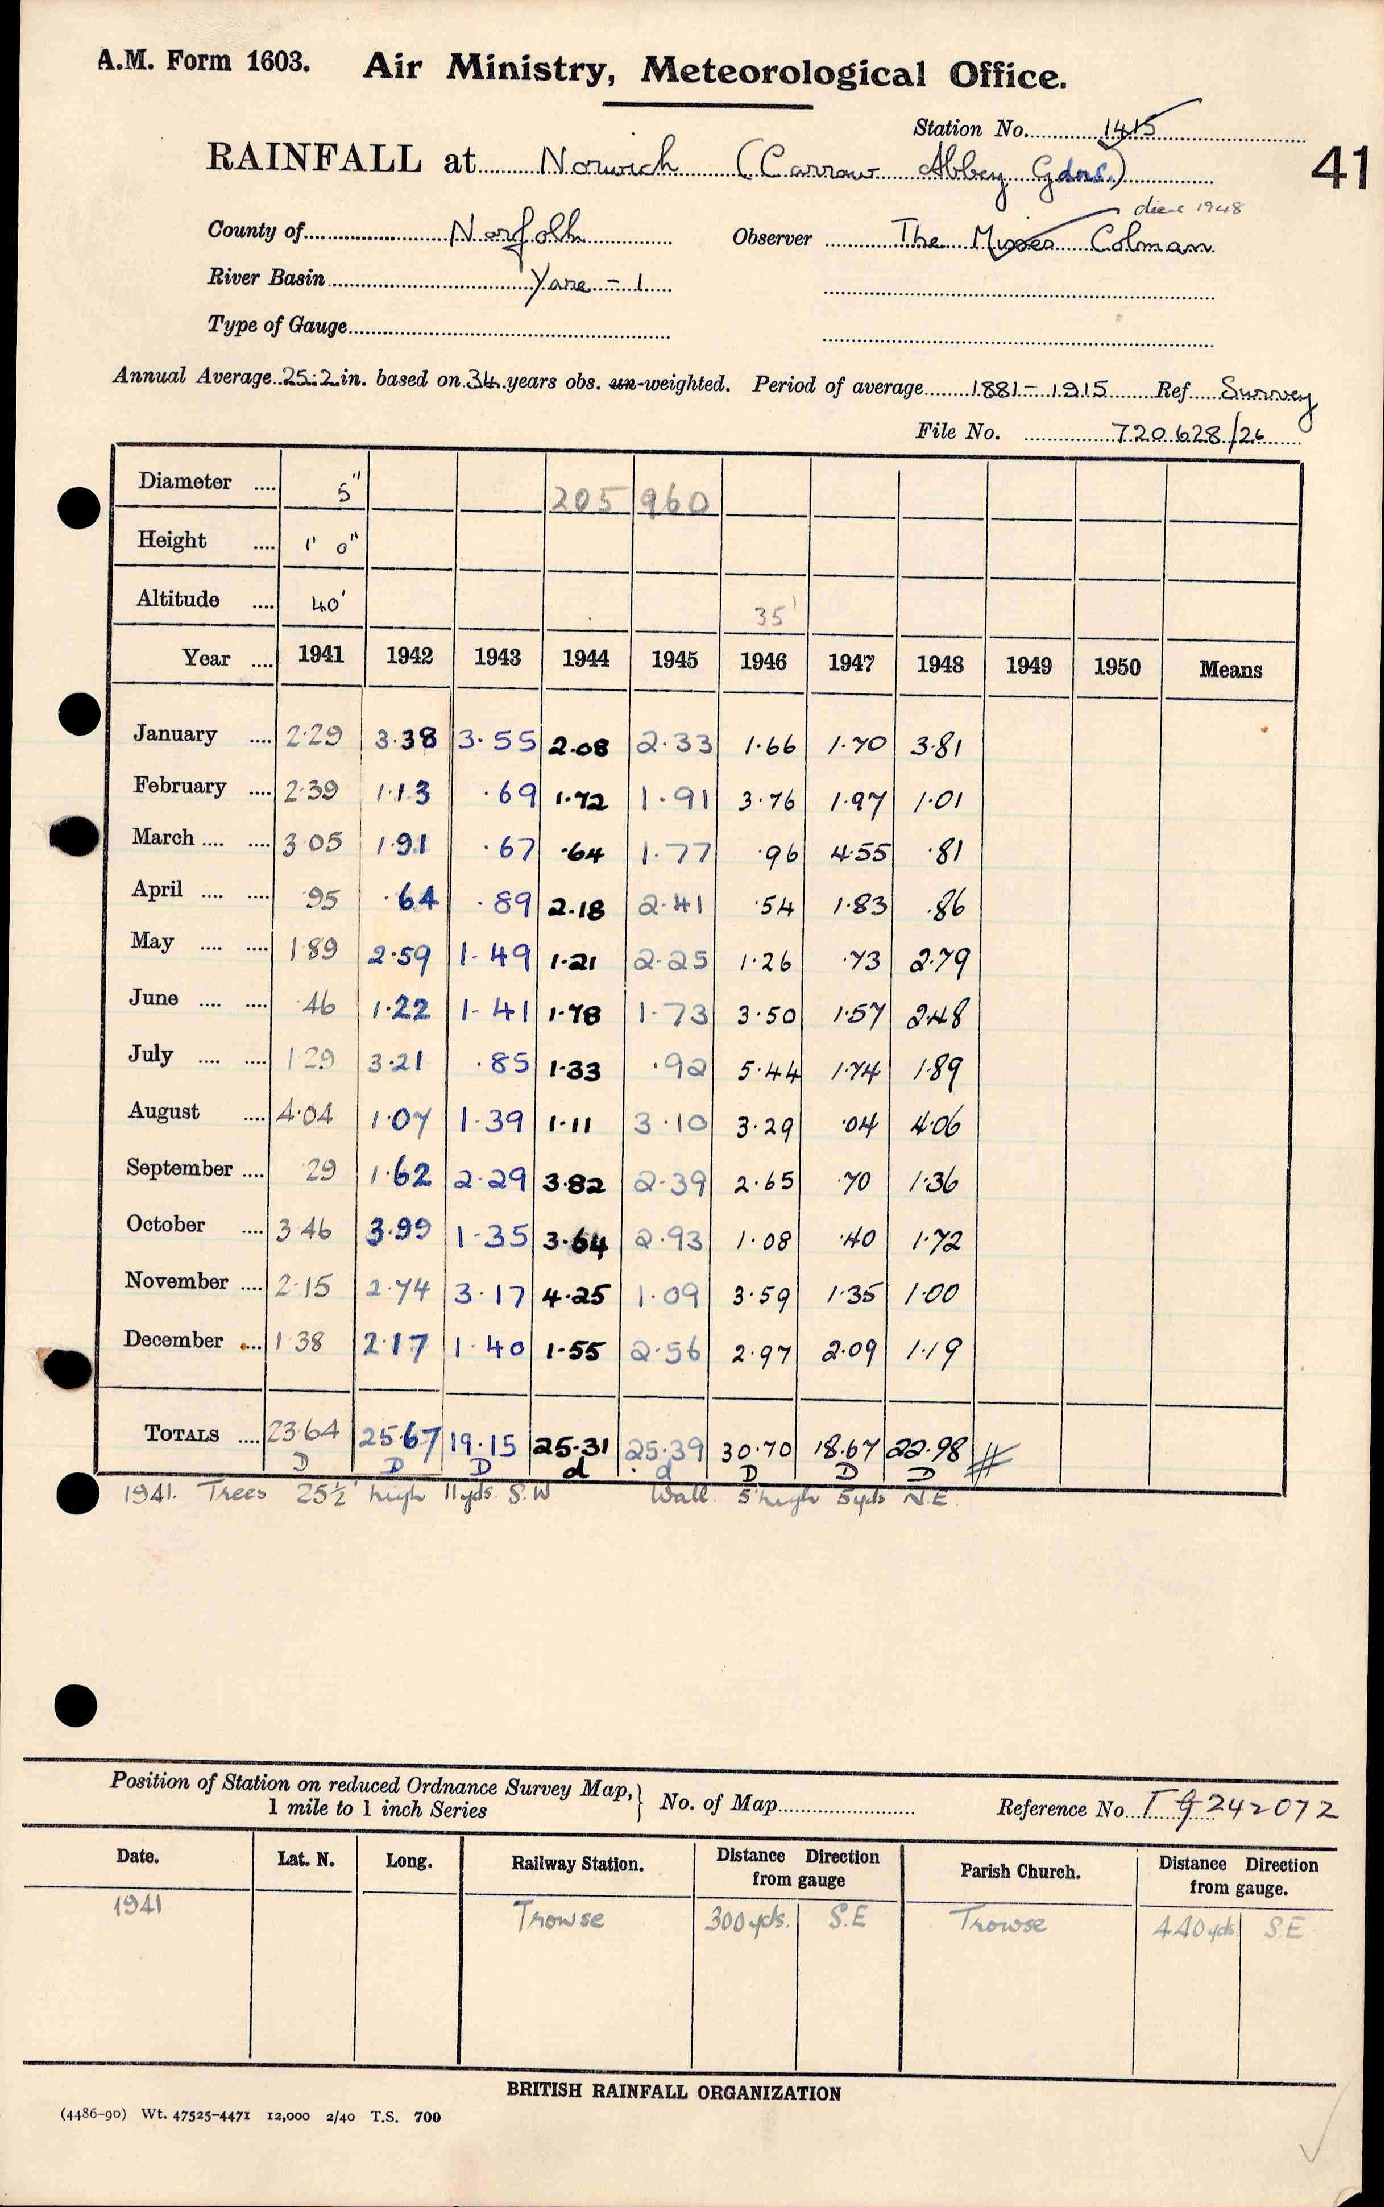 A.M. Form 1603. Air Ministry, Meteorological Office.
Station No. 1415
RAINFALL at Norwich (Carrow Abbey Gdns.) 41
1948
County of Norfolk Observer The Misses Colman
River Basin Yare - 1
Type of Gauge
Annual Average 25.2 in. based on 34 years obs. un-weighted. Period of average 1881 - 1915 Ref Survey
File No. 720628/26
Diameter .... 5" 205 960
Height .... 1' 0"
Altitude .... 40' 35'
Year .... 1941 1942 1943 1944 1945 1946 1947 1948 1949 1950 Means
January .... 2.29 3.38 3.55 2.08 2.33 1.66 1.70 3.81
February .... 2.39 1.13 .69 1.72 1.91 3.76 1.97 1.01
March .... .... 3.05 1.91 .67 .64 1.77 .96 4.55 .81
April .... .... .95 .64 .89 2.18 2.41 .54 1.83 .86
May .... .... 1.89 2.59 1.49 1.21 2.25 1.26 .73 2.79
June .... .... .46 1.22 1.41 1.78 1.73 3.50 1.57 2.48
July .... .... 1.29 3.21 .85 1.33 .92 5.44 1.74 1.89
August .... 4.04 1.07 1.39 1.11 3.10 3.29 .04 4.06
September .... .29 1.62 2.29 3.82 2.39 2.65 .70 1.36
October .... 3.46 3.99 1.35 3.64 2.93 1.08 .40 1.72
November .... 2.15 2.74 3.17 4.25 1.09 3.59 1.35 1.00
December .... 1.38 2.17 1.40 1.55 2.56 2.97 2.09 1.19
TOTALS .... 23.64 25.67 19.15 25.31 25.39 30.70 18.67 22.98
D D D d d D D D
1941. Trees 25½' high 11yds. S.W Wall 5' high 5yds N.E.
Position of Station on reduced Ordnance Survey Map, } No. of Map Reference No. TG 242072
1 mile to 1 inch Series
Date. Lat. N. Long. Railway Station. Distance Direction from gauge Parish Church. Distance Direction from gauge.
1941 Trowse 300yds. S.E Trowse 440yds S.E
BRITISH RAINFALL ORGANIZATION
(4486-90) Wt. 47525-4471 12,000 2/40 T.S. 700